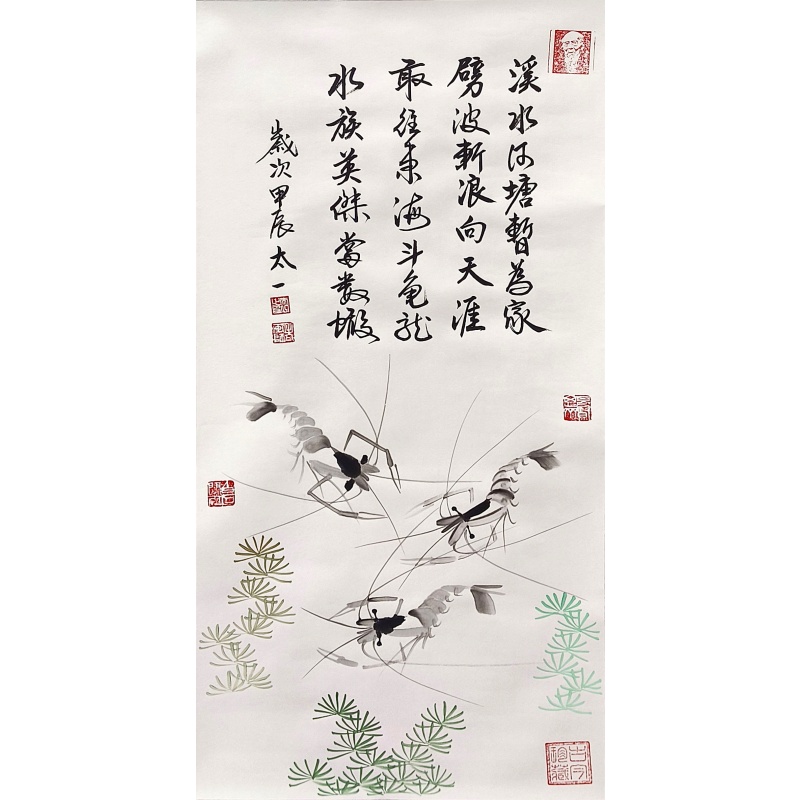 溪水河塘暫為家
劈波斬浪向天涯
敢往東海斗龟龙
水族英傑當數蝦
歲次甲辰太一
古今
珍藏